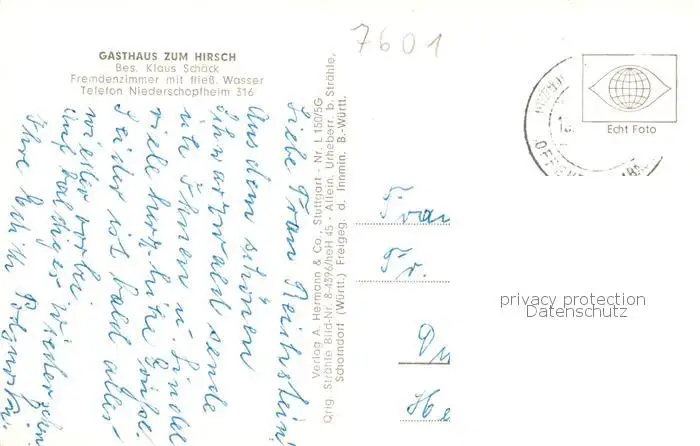 7601
GASTHAUS ZUM HIRSCH
Bes. Klaus Schäck
Fremdenzimmer mit fließ. Wasser
Telefon Niederschopfheim 316
Echt Foto
Liebe Frau
Aus dem schönen
Schwarzwald sende
ich Ihnen u.
viele herzliche Grüße.
Leider ist bald alles
wieder vorbei
Auf baldiges Wiedersehn
Ihre
Verlag A. Hermann & Co., Stuttgart - Nr. L 150/5G
Orig. Strähle Bild-Nr. 8-4396/heH 45 - Allein. Urheberr. b. Strähle,
Schorndorf (Württ.) Freigeg. d. Innmin. B.-Württ.
Frau
Fr.
He
privacy protection
Datenschutz